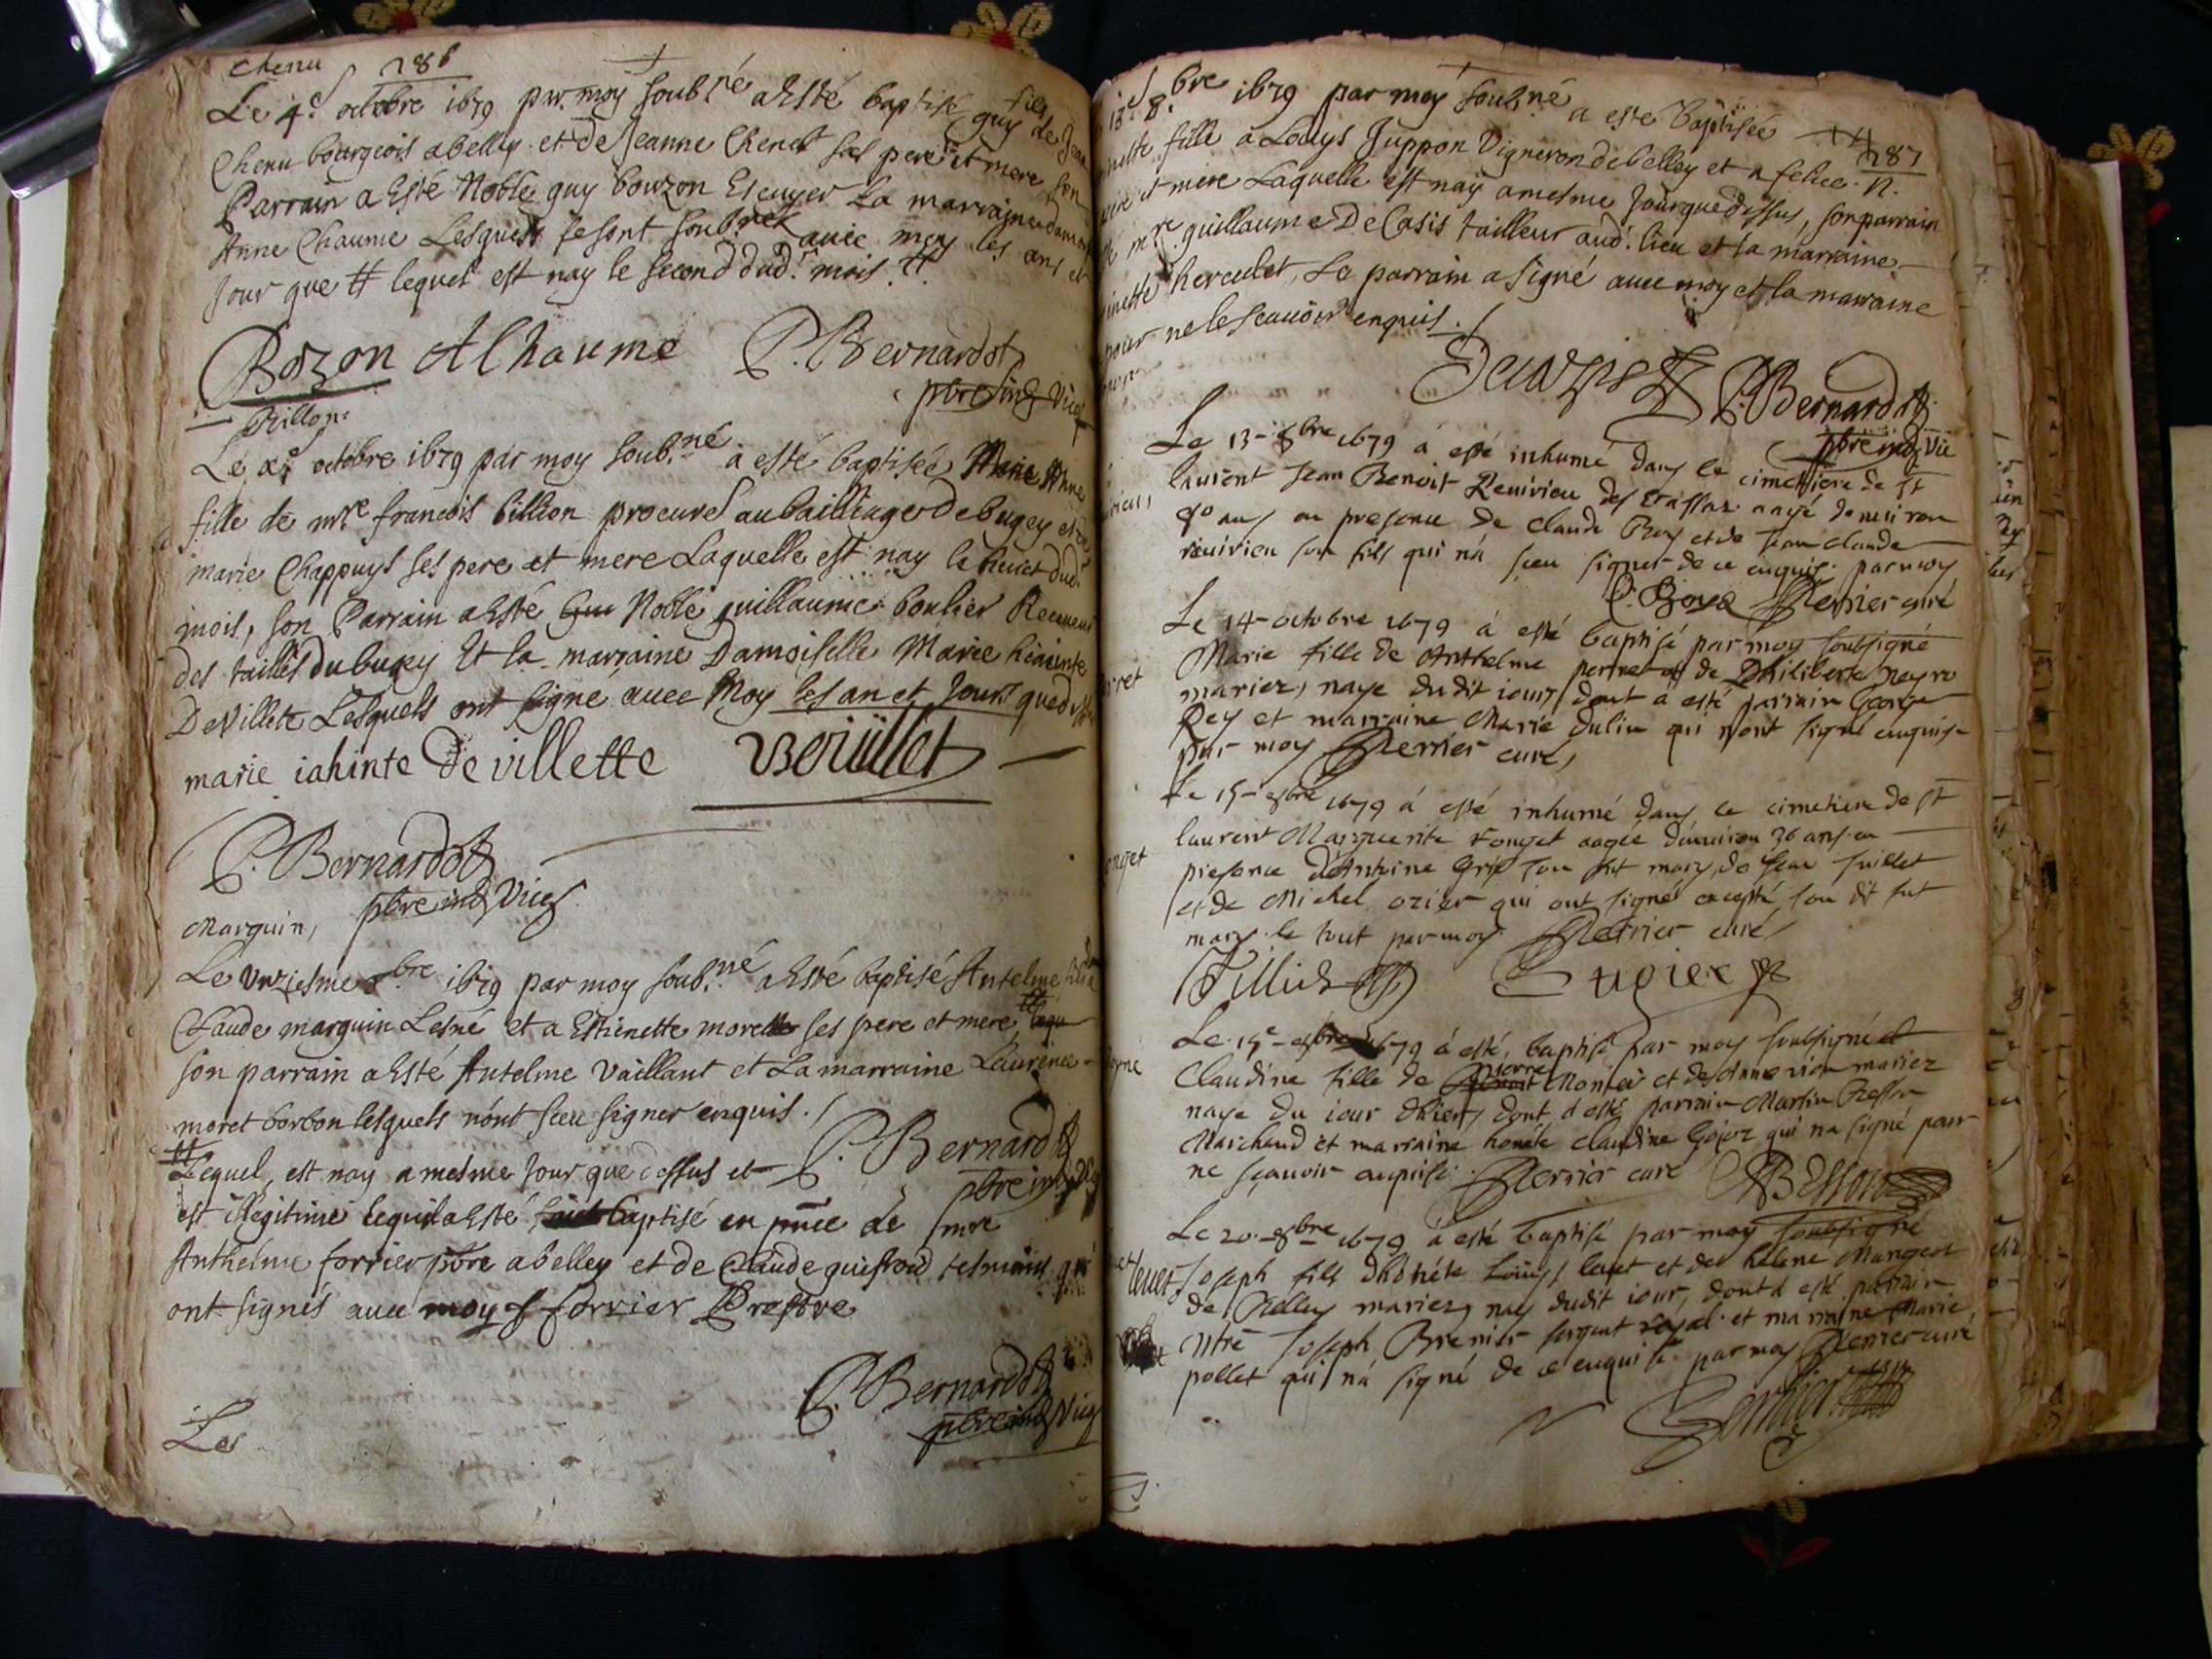 Chenu 286
Le 4e octobre 1679 par moy soubne a Esté baptisé guy fils de Jean
Chenu bourgeois abelley et de Jeanne Chenet ses pere et mere son
Parrain a Esté Noble guy bouzon Escuyer La marraine damoi
Anne Chaume Lesquels se sont soubnez avec moy les ans et
Jour que # lequel est nay le second dud. mois. #
Bozon AChaume P. Bernardot
pbre ind Vice
Billion
Le xe octobre 1679 par moy soub.né a esté baptiseé Marie Anne
fille de mre francois billion procureur au bailliage de bugey et de
marie Chappuys ses pere et mere Laquelle est nay le huict dud.
mois, son Parrain a Esté Noble guillaume boulier Receveur
des tailles du bugey Et la marraine Damoiselle Marie hiacinte
De Villette Lesquels ont signé avec Moy les an et Jours que dessus
marie iahinte De villette Boüillet
P. Bernardot
pbre ind Vice
Marguin,
Le Unziesme 8bre 1679 par moy soub.né a Esté baptisé Antelme fils a
Claude marguin Lesné et a Estienette morette ses pere et mere, #
son parrain a Esté Antelme Vaillant et La marraine Laurence
moret borbon lesquels n'ont sceu signer enquis. /
P. Bernardot
pbre ind Vice
# Lequel, est nay a mesme Jour que dessus et
est illegitime lequel a Esté baptisé en pnce de mre
Anthelme forrier pbre a belley et de Claude guiffrod tesmoins qui
ont signés avec moy forrier Prestre
P. Bernardot
pbre ind Vice
Le
287
13e 8.bre 1679 par moy soub.né a este baptisée
fille a Louys Juppon Vigneron de belley et a felice. N.
pere et mere Laquelle est nay a mesme Jour que dessus, son parrain
mre guillaume De Casis tailleur aud. lieu et la marraine
herculet, Le parrain a signé avec moy et la marraine
pour ne le scavoir enquis. /
P. Bernardot
pbre ind Vic
Le 13 8bre 1679 a esté inhumé dans le cimetiere de St
laurent Jean Benoit Revirieu des aagé d'environ
ans en presence de Claude Roy et de Jean Claude
revirieu son fils qui n'a sceu signer de ce enquis par moy
C. Roya Perrier curé
Le 14 octobre 1679 a esté baptisé par moy soubsigné
Marie fille de Anthelme perret et de Philiberte
mariez, naye du dit iour, dont a esté parrain George
Rey et marraine Marie Dulin qui n'ont signé enquis
par moy Perrier curé,
Le 15 8bre 1679 a esté inhumé dans le cimetiere de St
laurent Marguerite Fonget aagée d'environ 36 ans en
presence d'Antoine son fut mary, de Jean Juillet
et de Michel ozier qui ont signé excepté son dit fut
mary le tout par moy Perrier curé
Le 15e 8bre 1679 a esté baptisé par moy soubsigné
Claudine fille de pierre et de Anne mariez
naye du iour d'hier, dont a esté parrain Martin Besson
Marchand et marraine honéte Claudine qui n'a signé pour
ne sçavoir enquise Perrier curé MBesson
Le 20 8bre 1679 a esté baptisé par moy soubsigné
levet Joseph fils d'honéte Louis levet et de helene
de Belley mariez, nay dudit iour, dont a esté parrain
Mre Joseph Brenier sergent royal et marraine Marie
pollet qui n'a signé de ce enquise par moy Perrier curé